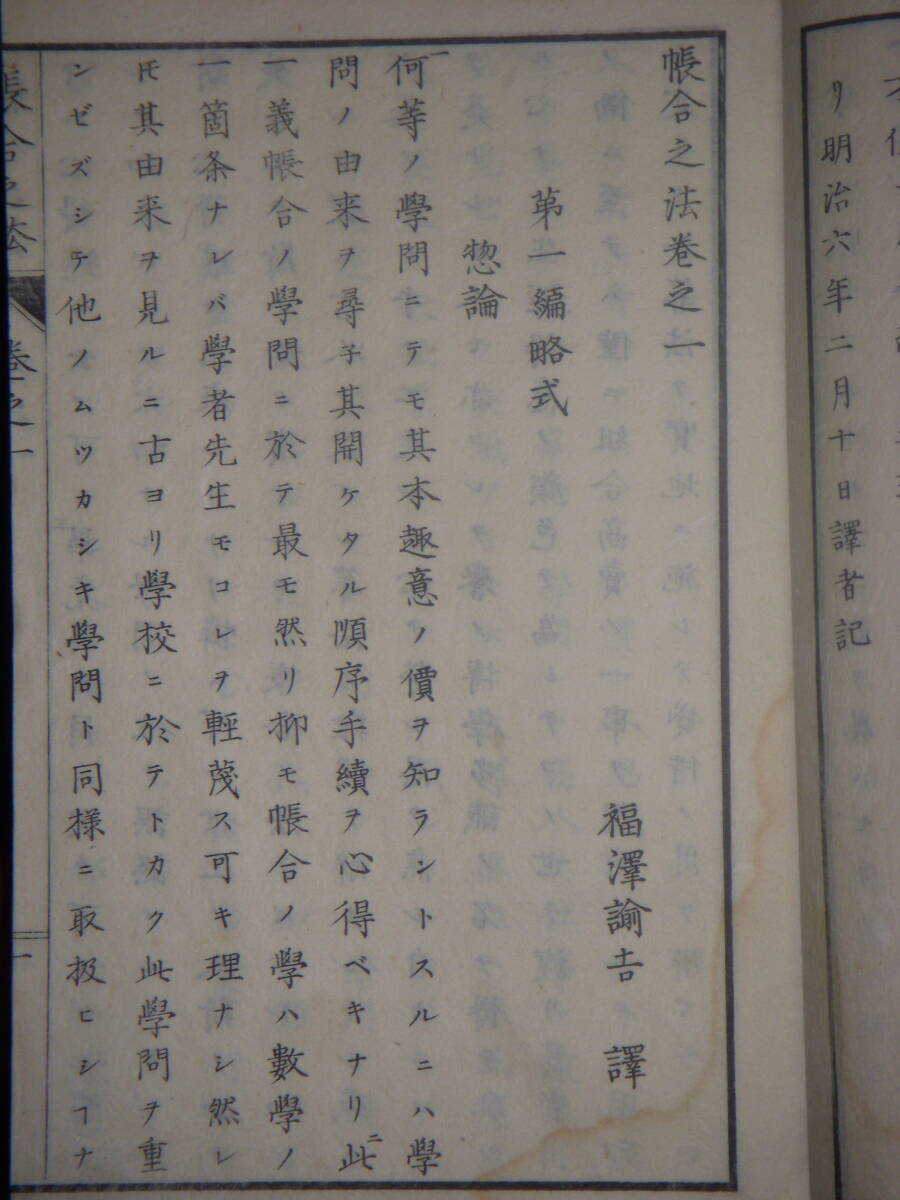 リ明治六年二月十日譯者記
帳合之法卷之一
福澤諭吉 譯
第一編略式
惣論
一
何等ノ學問ニテモ其本趣意ノ價ヲ知ラントスルニハ學
問ノ由来ヲ尋子其開ケタル順序手續ヲ心得ベキナリ此
二
一義帳合ノ學問ニ於テ最モ然リ抑モ帳合ノ學ハ數學ノ
一箇条ナレバ學者先生モコレヲ輕蔑ス可キ理ナシ然レ
𪜈其由来ヲ見ルニ古ヨリ學校ニ於テトカク此學問ヲ重
ンゼズシテ他ノムツカシキ學問ト同様ニ取扱ヒシヿナ
帳合之法
卷之一
一